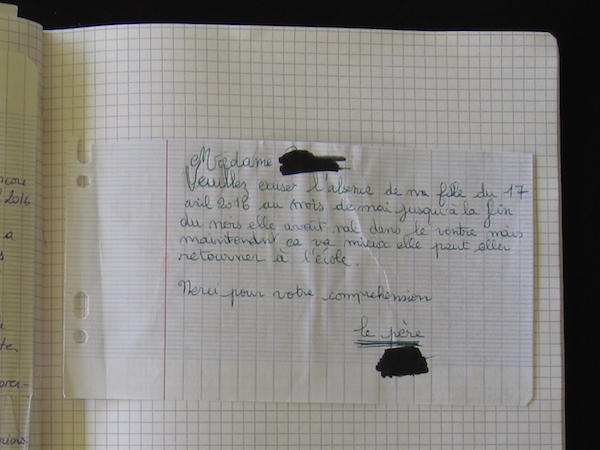 core
2016
a
te.
Madame
Veuillez exuser l'absence de ma fille du 17
avil 2016 au mois de mai jusqu'à la fin
du mois elle avait mal dans le ventre mais
maintendnt ça va mieux elle peut aller
retourner à l'école.
Merci pour votre comprehension
le père